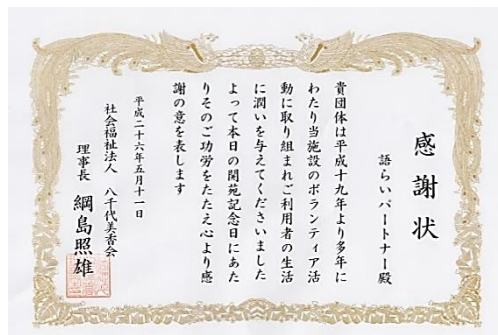 感謝状
語らいパートナー殿
貴団体は平成十九年より多年に
わたり当施設のボランティア活
動に取り組まれご利用者の生活
に潤いを与えてくださいました
よって本日の開苑記念日にあた
りそのご功労をたたえ心より感
謝の意を表します
平成二十六年五月十一日
社会福祉法人 八千代美香会
理事長 綱島照雄